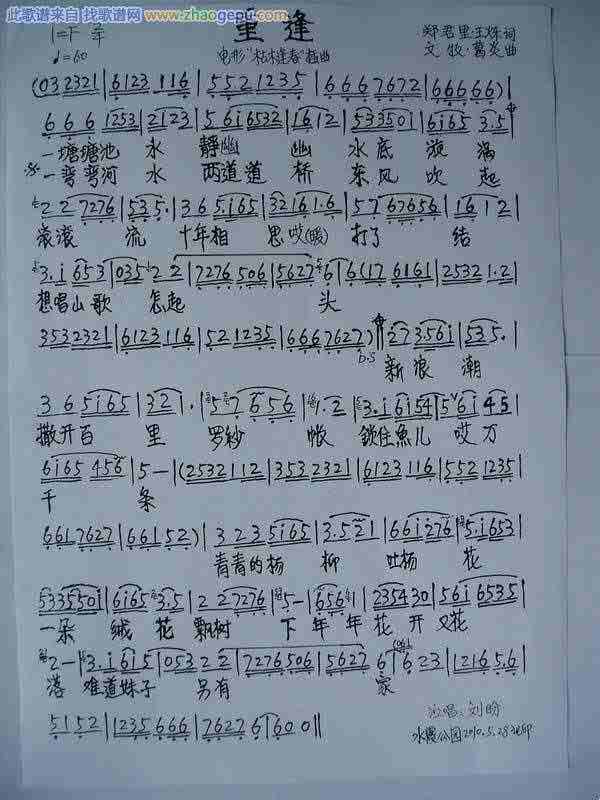 此歌谱来自 找歌谱网 www.zhaogepu.com
重逢
1=F 2/4
♩=60
电影"枯木逢春"插曲
郑君里 王炼词
文牧·葛炎曲
(03 2321 | 6123 116 | 552 1235 | 666 7672 | 66666)
666 1253 | 2123 | 5 6i6532 | 1612 | 533501 | 6i65 3.5
一塘塘池 水 静幽 幽 水底 漩 涡
一弯弯河 水 两道道 桥 东风 吹 起
2 2 7276 | 535. | 36 5i65 | 3216 1.6 | 57 67656 | 1612
滚滚 流 十年相 思哎(暖) 打了 结
3.i 653 | 035 2 2 | 7276 506 | 5627 6 | 6(17 6161 | 2532 1.2
想唱山歌 怎起 头
353 2321 | 6123 116 | 52 1235 | 666 7627) | 2723561 | 535.
D.S
新浪 潮
36 5i65 | 32. | 57 656 | 1.2 | 3.i 6i54 | 56i 45
撒开百 里 罗纱 帐 锁住鱼儿 哎万
6i65 456 | 5— | (2532 112 | 353 2321 | 6123 116 | 552 1235
千 条
661 7627 | 66152) | 323 5i65 | 3.521 | 661276 | 5.i653
青青的杨 柳 吐杨 花
5335501 | 6i65 3.5 | 2 2 7276 | 5— | 656 | 235430 | 56i 6535
一朵 绒花 飘树 下 年年花 开 又花
2— | 3.i 6i5 | 053 2 2 | 7276 506 | 5627 6 | 6 23 | 1216 5.6
落 难道妹子 另有 家
5152 | 1235 666 | 7627 6 | 600 ||
演唱:刘盼
水霞公园2010.5.28